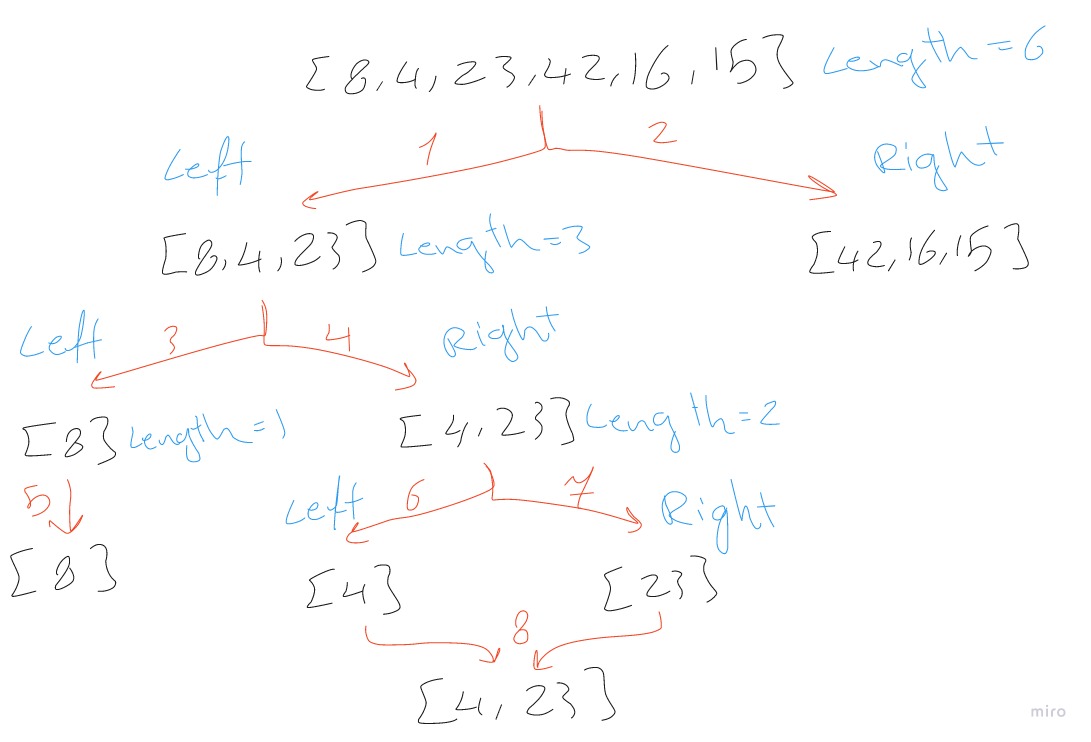 [8,4,23,42,16,15] Length=6
1 2
Left Right
[8,4,23] Length=3 [42,16,15]
Left 3 4 Right
[8] Length=1 [4,23] Length=2
5 Left 6 7 Right
[8] [4] [23]
8
[4,23]
miro